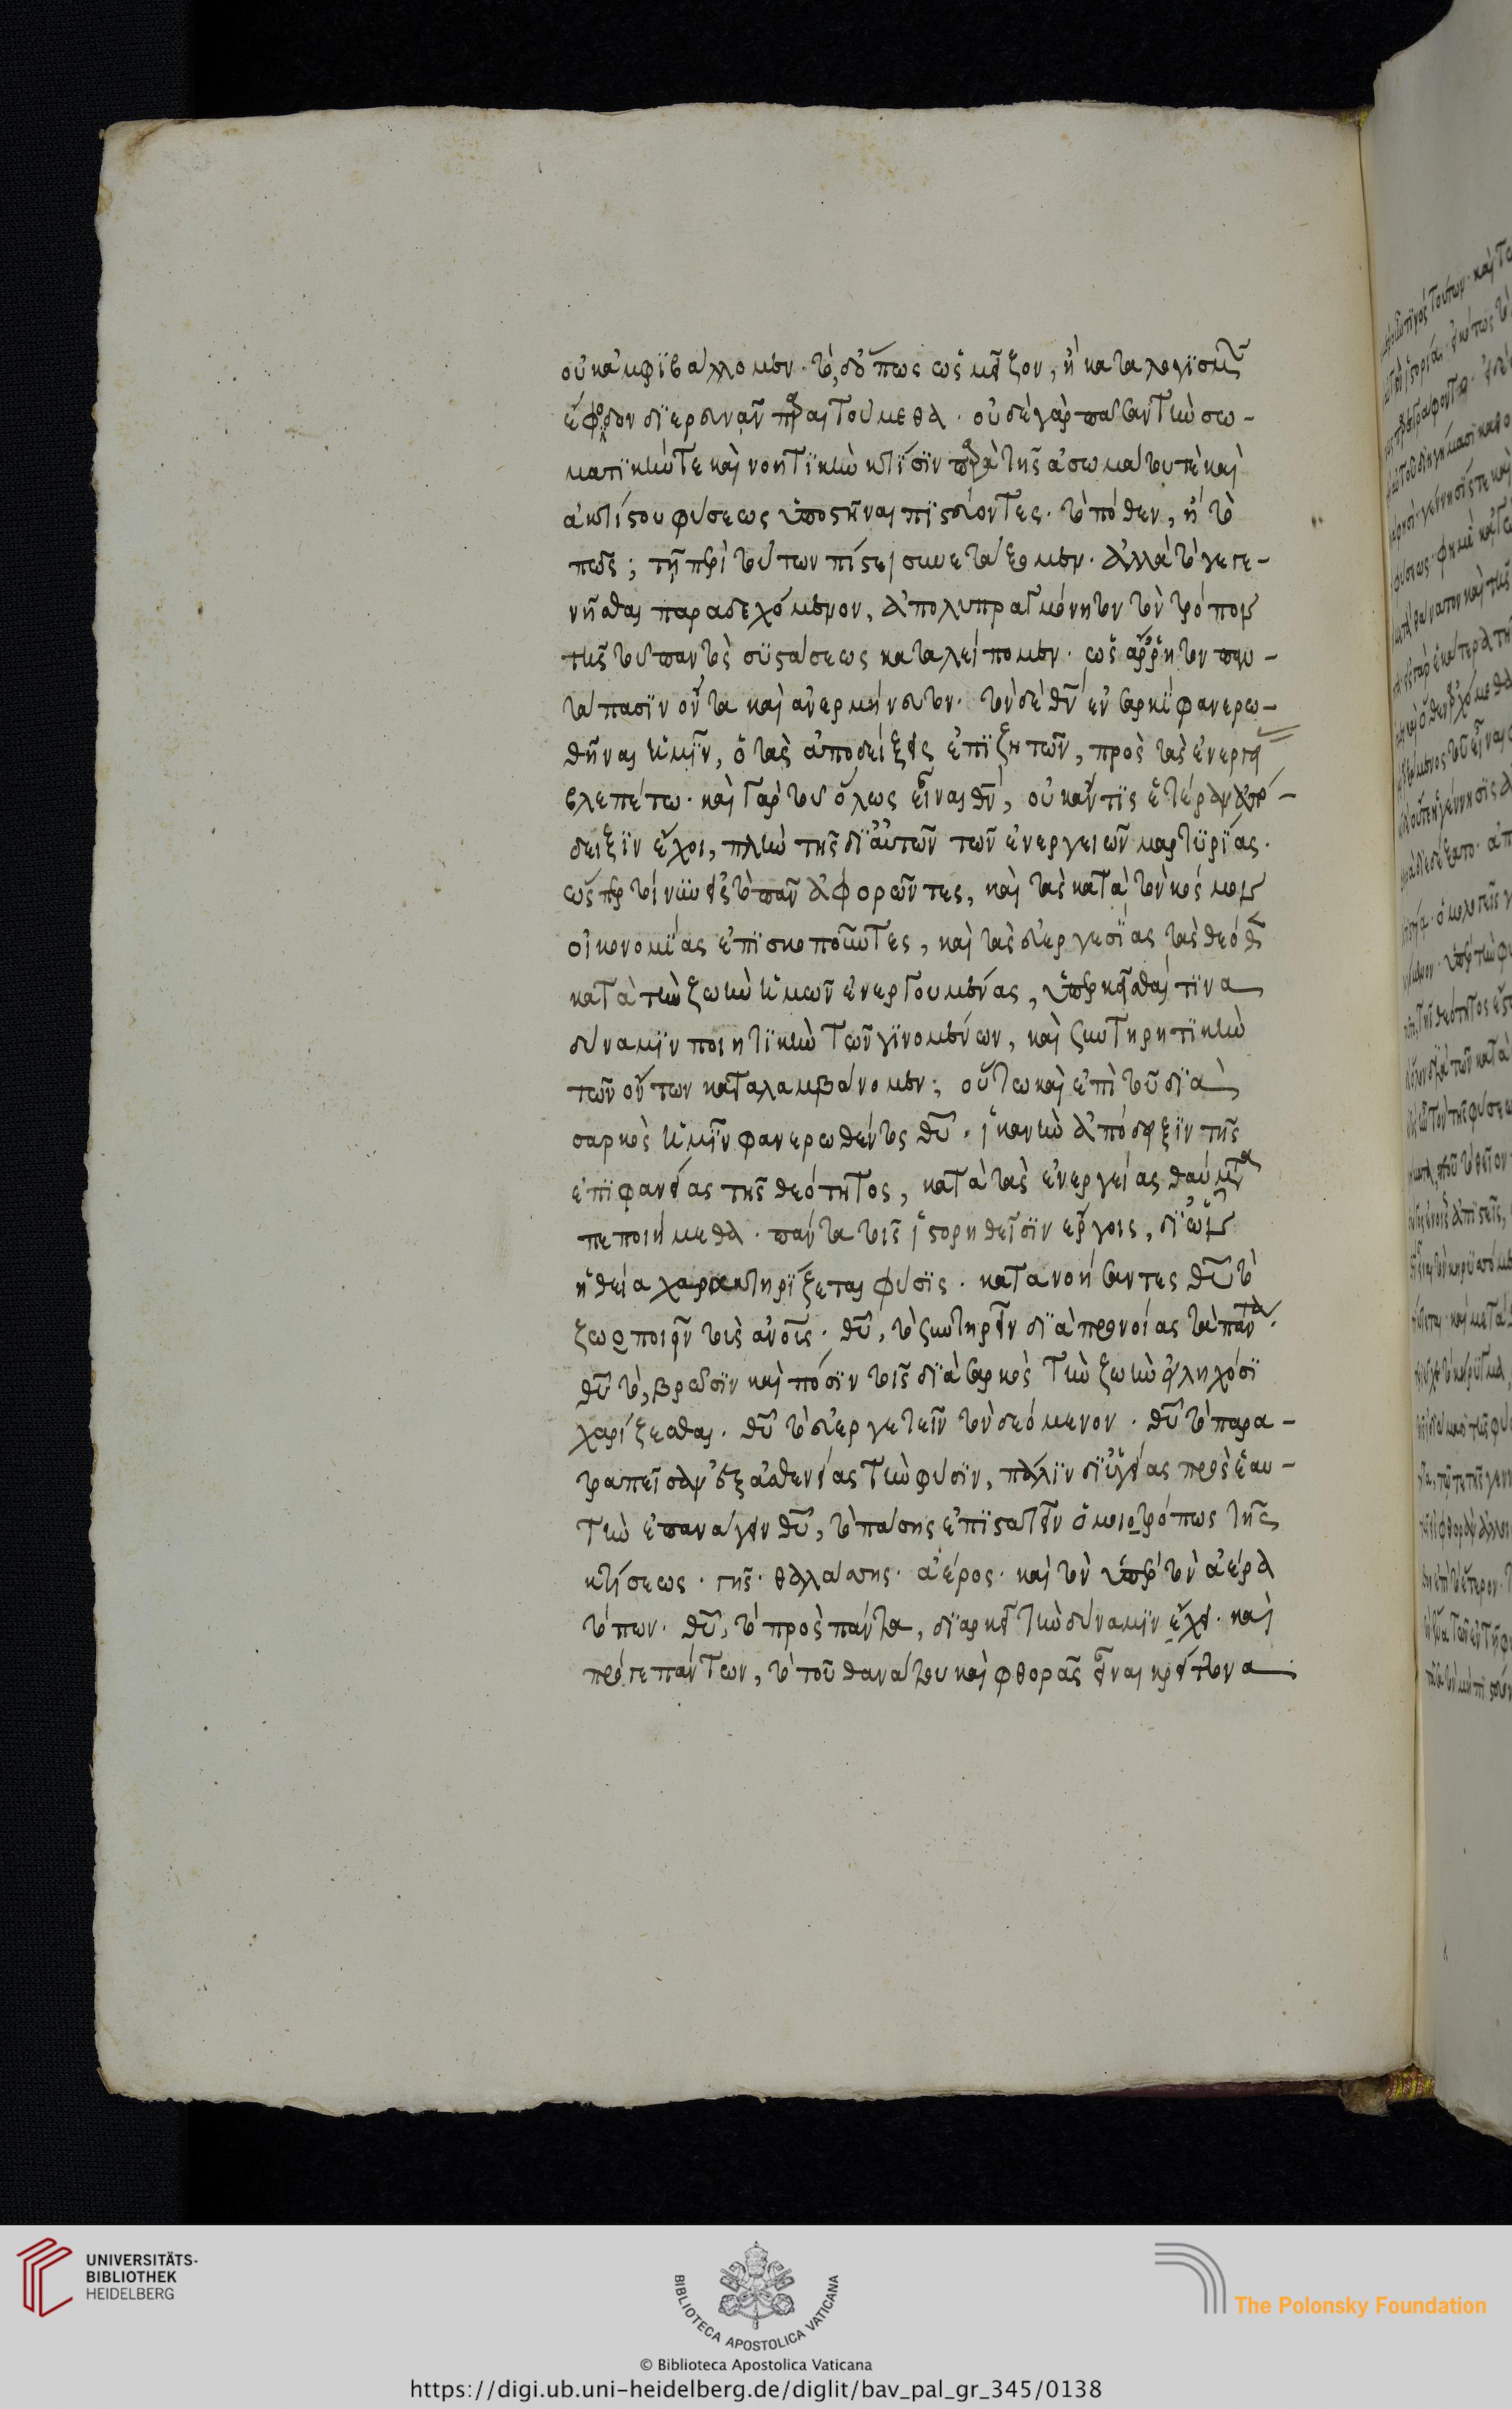 οὐκ ἀμφιβάλλομεν· τὸ, δ' ὅπως ὡς μεῖζον, ἢ κατὰ λογισμῶν
ἔφοδον διερευνᾶν παραιτούμεθα. οὐδὲ γὰρ πᾶσαν τὴν σω-
ματικήν τε καὶ νοητικὴν κτίσιν παρὰ τῆς ἀσωμάτου τὲ καὶ
ἀκτίστου φύσεως ὑποστῆναι πιστεύοντες. τὸ πόθεν, ἢ τὸ
πῶς; τῇ περὶ τούτων πίστει συνετάξαμεν. ἀλλὰ τὸ γεγε-
νῆσθαι παραδεχόμενον, ἀπολυπραγμόνητον τὸν τρόπον
τῆς τοῦ παντὸς συστάσεως καταλείπομεν. ὡς ἄρρητον παν-
τάπασιν ὄντα καὶ ἀνερμήνευτον. τὸν δὲ θν̅ ἐν σαρκὶ φανερω-
θῆναι ἡμῖν, ὁ τὰς ἀποδείξεις ἐπιζητῶν, πρὸς τὰς ἐνεργείας
βλεπέτω. καὶ γὰρ τοῦ ὅλως εἶναι θν̅, οὐκ ἄν τις ἑτέραν ἀπό-
δειξιν ἔχοι, πλὴν τῆς δι' αὐτῶν τῶν ἐνεργειῶν μαρτυρίας.
ὥσπερ τοίνυν εἰς τὸ πᾶν ἀφορῶντες, καὶ τὰς κατὰ τὸν κόσμον
οἰκονομίας ἐπισκοποῦντες, καὶ τὰς εὐεργεσίας τὰς θεόθεν
κατὰ τὴν ζωὴν ἡμῶν ἐνεργουμένας, ὑπερκεῖσθαί τινα
δύναμιν ποιητικὴν τῶν γινομένων, καὶ συντηρητικὴν
τῶν ὄντων καταλαμβάνομεν; οὕτω καὶ ἐπὶ τοῦ διὰ
σαρκὸς ἡμῖν φανερωθέντος θυ̅. ἱκανὴν ἀπόδειξιν τῆς
ἐπιφανείας τῆς θεότητος, κατὰ τὰς ἐνεργείας θαύματα
πεποιήμεθα. πάντα τοῖς ἱστορηθεῖσιν ἔργοις, δι' ὧν
ἡ θεία χαρακτηρίζεται φύσις. κατανοήσαντες θυ̅ τὸ
ζωοποιεῖν τοὺς ἀνο̅υς. θυ̅, τὸ συντηρεῖν διὰ προνοίας τὰ πάντα.
θυ̅ τὸ, βρῶσιν καὶ πόσιν τοῖς διὰ σαρκὸς τὴν ζωὴν εἰληχόσι
χαρίζεσθαι. θυ̅ τὸ εὐεργετεῖν τὸν δεόμενον. θυ̅ τὸ παρα-
τραπεῖσαν ἐξ ἀσθενείας τὴν φύσιν, πάλιν δι' ὑγείας πρὸς ἑαυ-
τὴν ἐπανάγειν θυ̅, τὸ πάσης ἐπιστατεῖν ὁμοιοτρόπως τῆς
κτίσεως. γῆς. θαλάσσης. ἀέρος. καὶ τὸν ὑπὲρ τὸν ἀέρα
τόπων. θυ̅, τὸ πρὸς πάντα, διαρκεῖ τὴν δύναμιν ἔχει. καὶ
πρό τε πάντων, τὸ τοῦ θανάτου καὶ φθορᾶς εἶναι κρείττονα
UNIVERSITÄTS-
BIBLIOTHEK
HEIDELBERG
BIBLIOTECA APOSTOLICA VATICANA
The Polonsky Foundation
© Biblioteca Apostolica Vaticana
https://digi.ub.uni-heidelberg.de/diglit/bav_pal_gr_345/0138